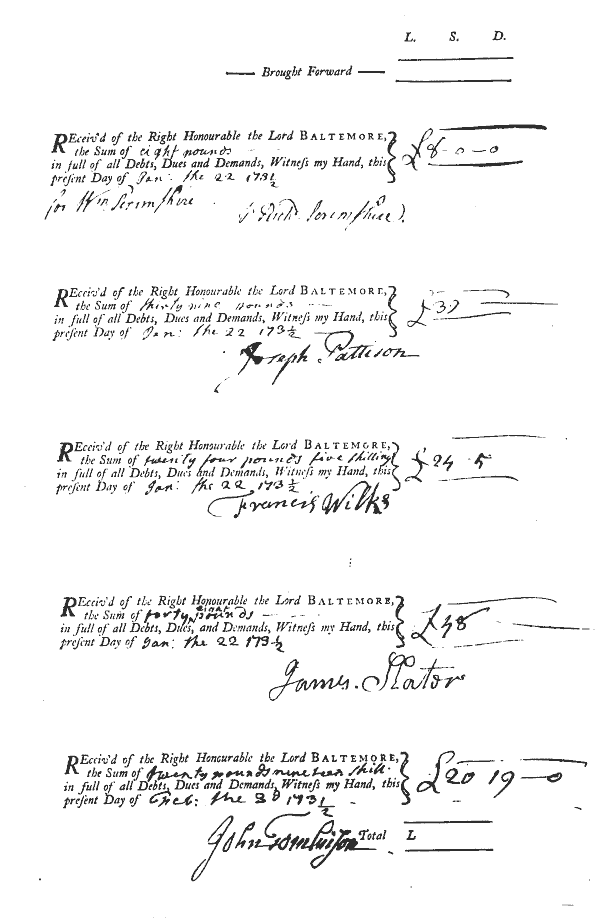 L. S. D.
Brought Forward
REceiv'd of the Right Honourable the Lord BALTEMORE,
the Sum of eight pounds £8-0-0
in full of all Debts, Dues and Demands, Witneſs my Hand, this
preſent Day of Jan: the 22 173½
for Wm Scrimſhire
REceiv'd of the Right Honourable the Lord BALTEMORE,
the Sum of thirty nine pounds £39
in full of all Debts, Dues and Demands, Witneſs my Hand, this
preſent Day of Jan: the 22 173½
Joseph Pattison
REceiv'd of the Right Honourable the Lord BALTEMORE,
the Sum of twenty four pounds five ſhilling £24-5
in full of all Debts, Dues and Demands, Witneſs my Hand, this
preſent Day of Jan: the 22 173½
Francis Wilks
REceiv'd of the Right Honourable the Lord BALTEMORE,
the Sum of forty eight pounds £48
in full of all Debts, Dues, and Demands, Witneſs my Hand, this
preſent Day of Jan: the 22 173½
James Slator
REceiv'd of the Right Honourable the Lord BALTEMORE,
the Sum of twenty pounds nineteen ſhill: £20 19-0
in full of all Debts, Dues and Demands, Witneſs my Hand, this
preſent Day of Feb: the 3d 173½
John Tomlinson Total L